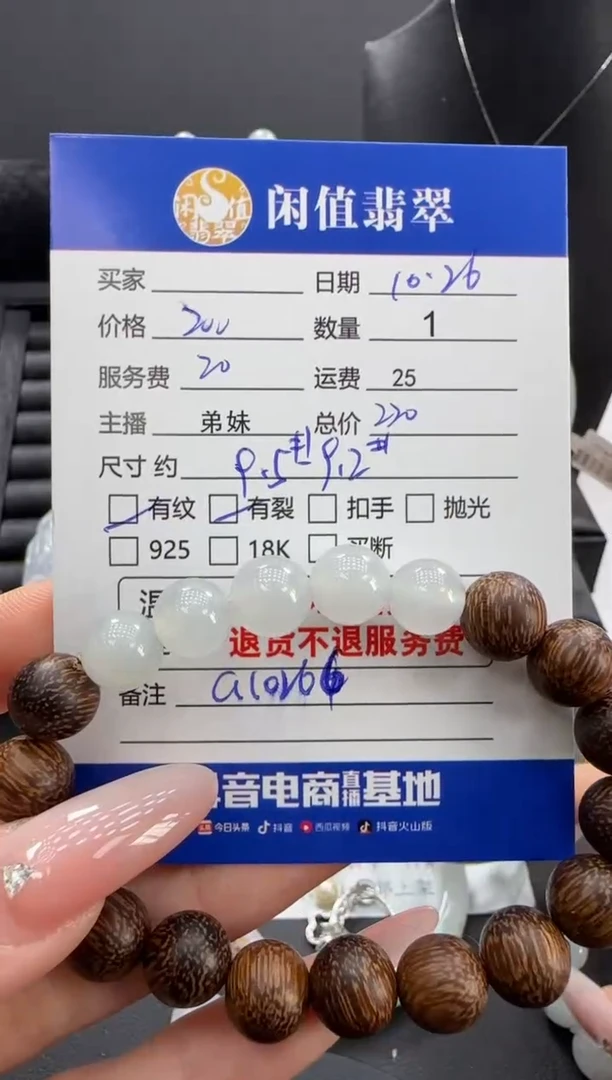 闲值翡翠
闲值翡翠
买家 日期 10.26
价格 200 数量 1
服务费 20 运费 25
主播 弟妹 总价 220
尺寸 约 9.5 9.2
有纹 有裂 扣手 抛光
925 18K 买断
温
退货不退服务费
备注
音电商直播基地
今日头条 抖音 西瓜视频 抖音火山版